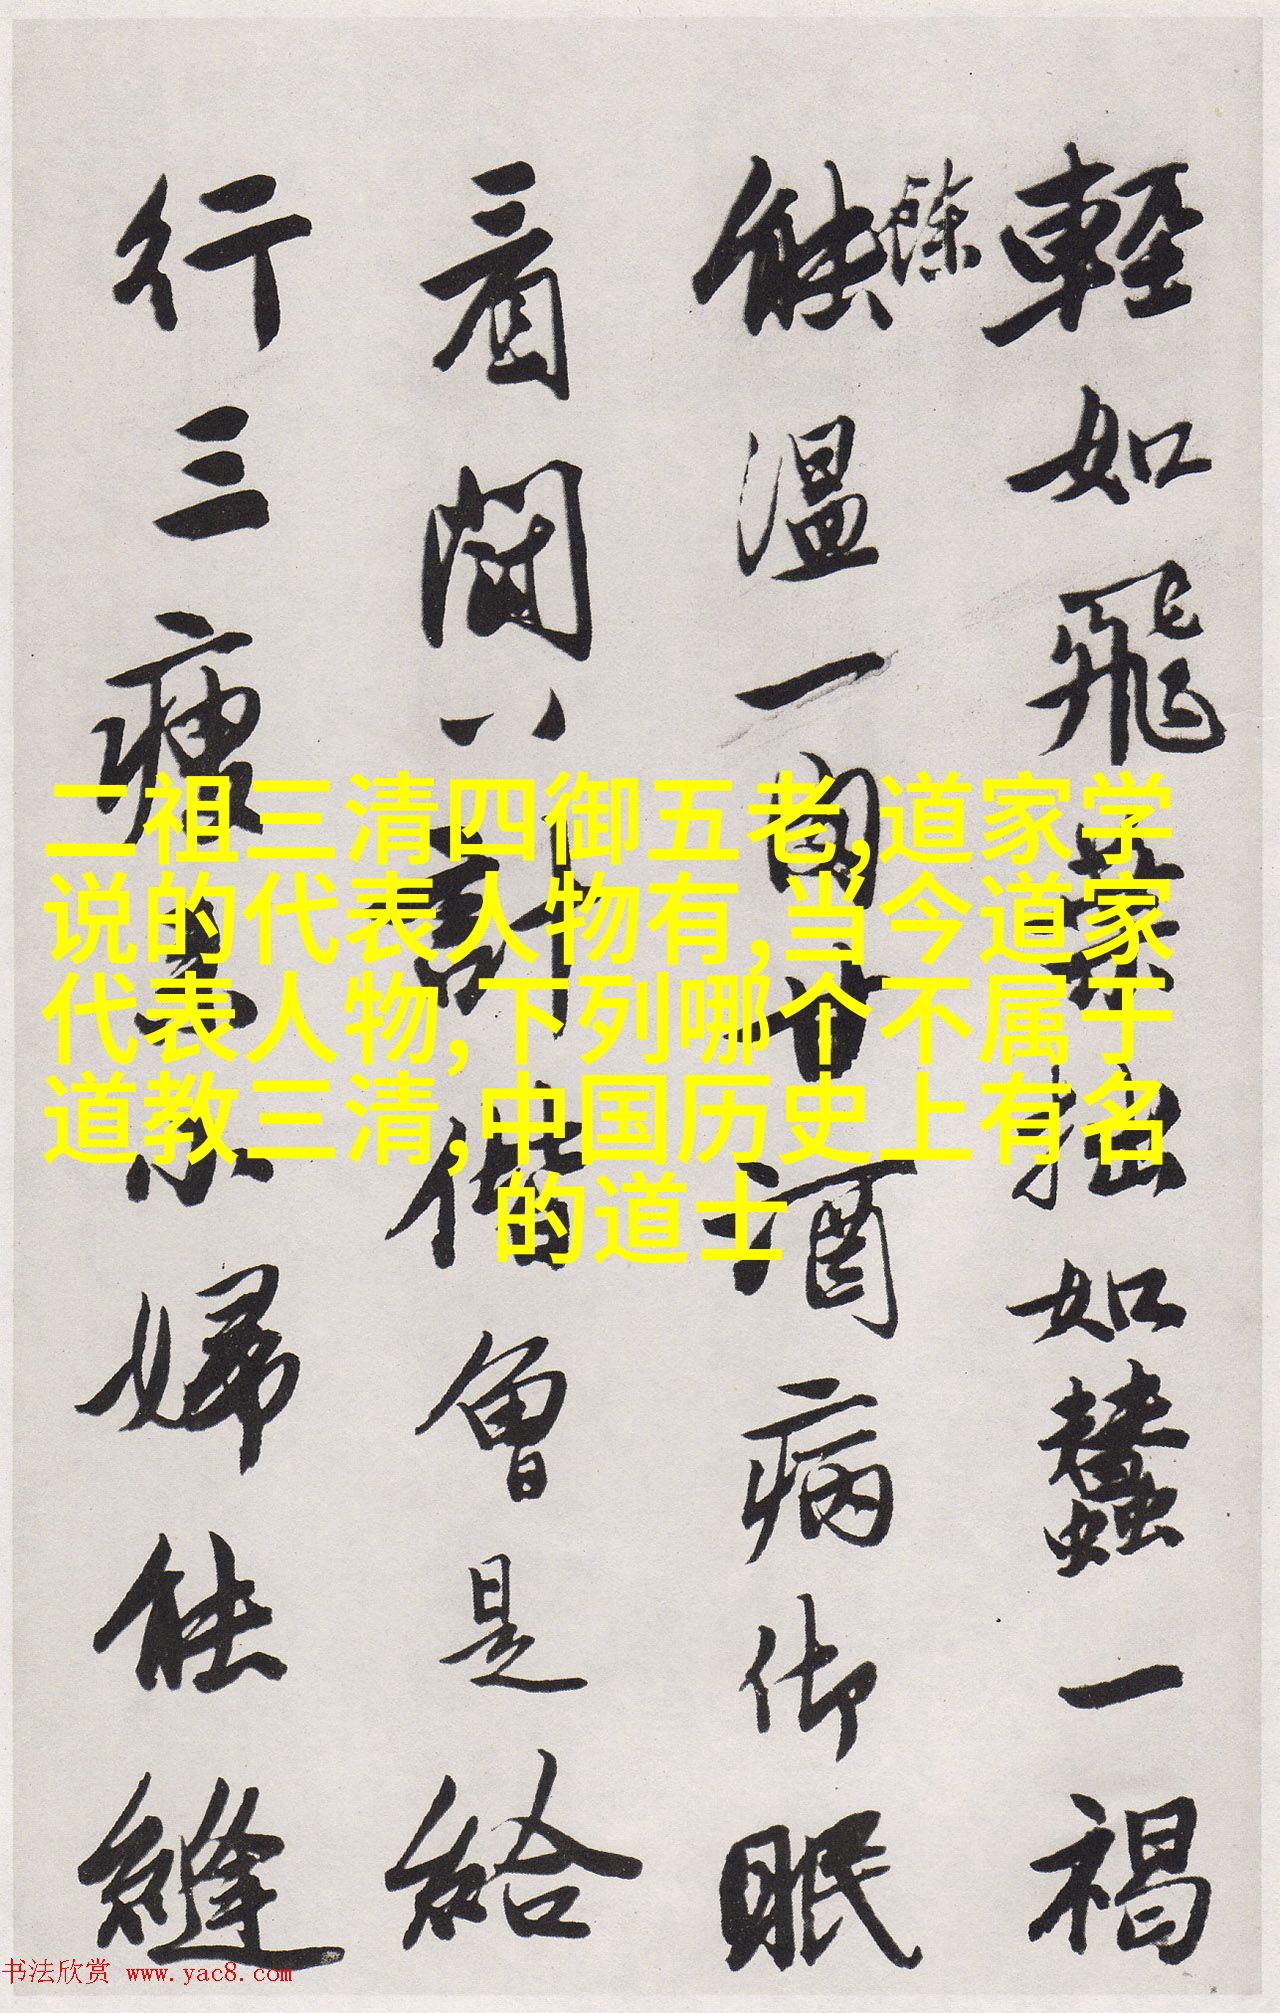 輕如飛葉拙如蠶一褐
能溫一甘酒病眠
看閗八計偕會是給
行三小婦能縫
二祖三清四御五老,道家学
说的代表人物有,当今道家
代表人物,下列哪个不属于
道教三清,中国历史上有名
的道士
书法欣赏 www.yac8.com